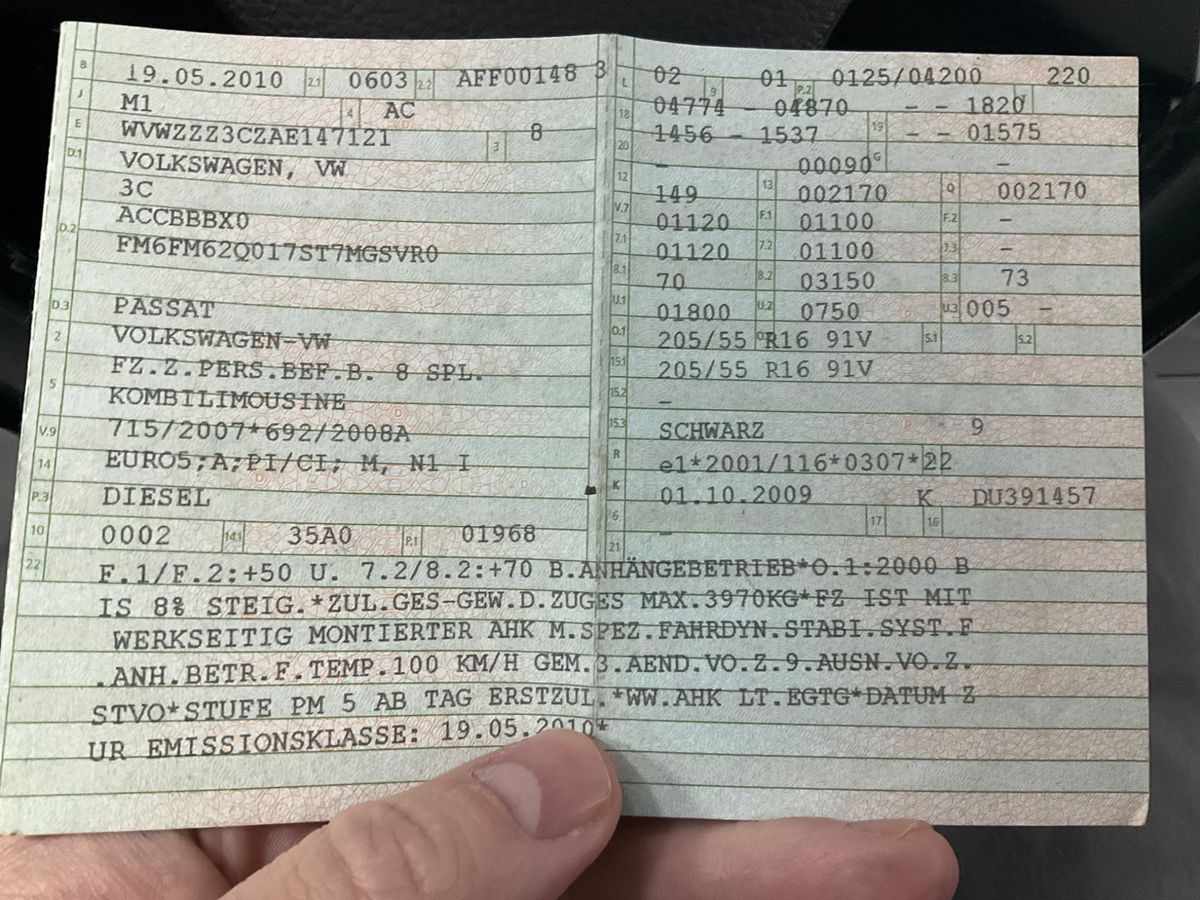 B 19.05.2010 2.1 0603 2.2 AFF00148 3
J M1 4 AC
E WVWZZZ3CZAE147121 3 8
D.1 VOLKSWAGEN, VW
3C
D.2 ACCBBBX0
FM6FM62Q017ST7MGSVR0
D.3 PASSAT
2 VOLKSWAGEN-VW
FZ.Z.PERS.BEF.B. 8 SPL.
5 KOMBILIMOUSINE
V.9 715/2007*692/2008A
14 EURO5;A;PI/CI; M, N1 I
P.3 DIESEL
10 0002 14.1 35A0 P.1 01968
L 02 9 01 P.2 0125/04200 220
18 04774 - 04870 - - 1820
1456 - 1537 19 - - 01575
20 - 00090 G -
12 149 13 002170 Q 002170
V.7 01120 F.1 01100 F.2 -
7.1 01120 7.2 01100 7.3 -
8.1 70 8.2 03150 8.3 73
U.1 01800 U.2 0750 U.3 005 -
O.1 205/55 R16 91V S.1 S.2
15.1 205/55 R16 91V
15.2 -
15.3 SCHWARZ 9
R e1*2001/116*0307*22
K 01.10.2009 K DU391457
6 - 17 16
21
22 F.1/F.2:+50 U. 7.2/8.2:+70 B.ANHÄNGEBETRIEB*O.1:2000 B
IS 8% STEIG.*ZUL.GES-GEW.D.ZUGES MAX.3970KG*FZ IST MIT
WERKSEITIG MONTIERTER AHK M.SPEZ.FAHRDYN.STABI.SYST.F
.ANH.BETR.F.TEMP.100 KM/H GEM.3.AEND.VO.Z.9.AUSN.VO.Z.
STVO*STUFE PM 5 AB TAG ERSTZUL.*WW.AHK LT.EGTG*DATUM Z
UR EMISSIONSKLASSE: 19.05.2010*